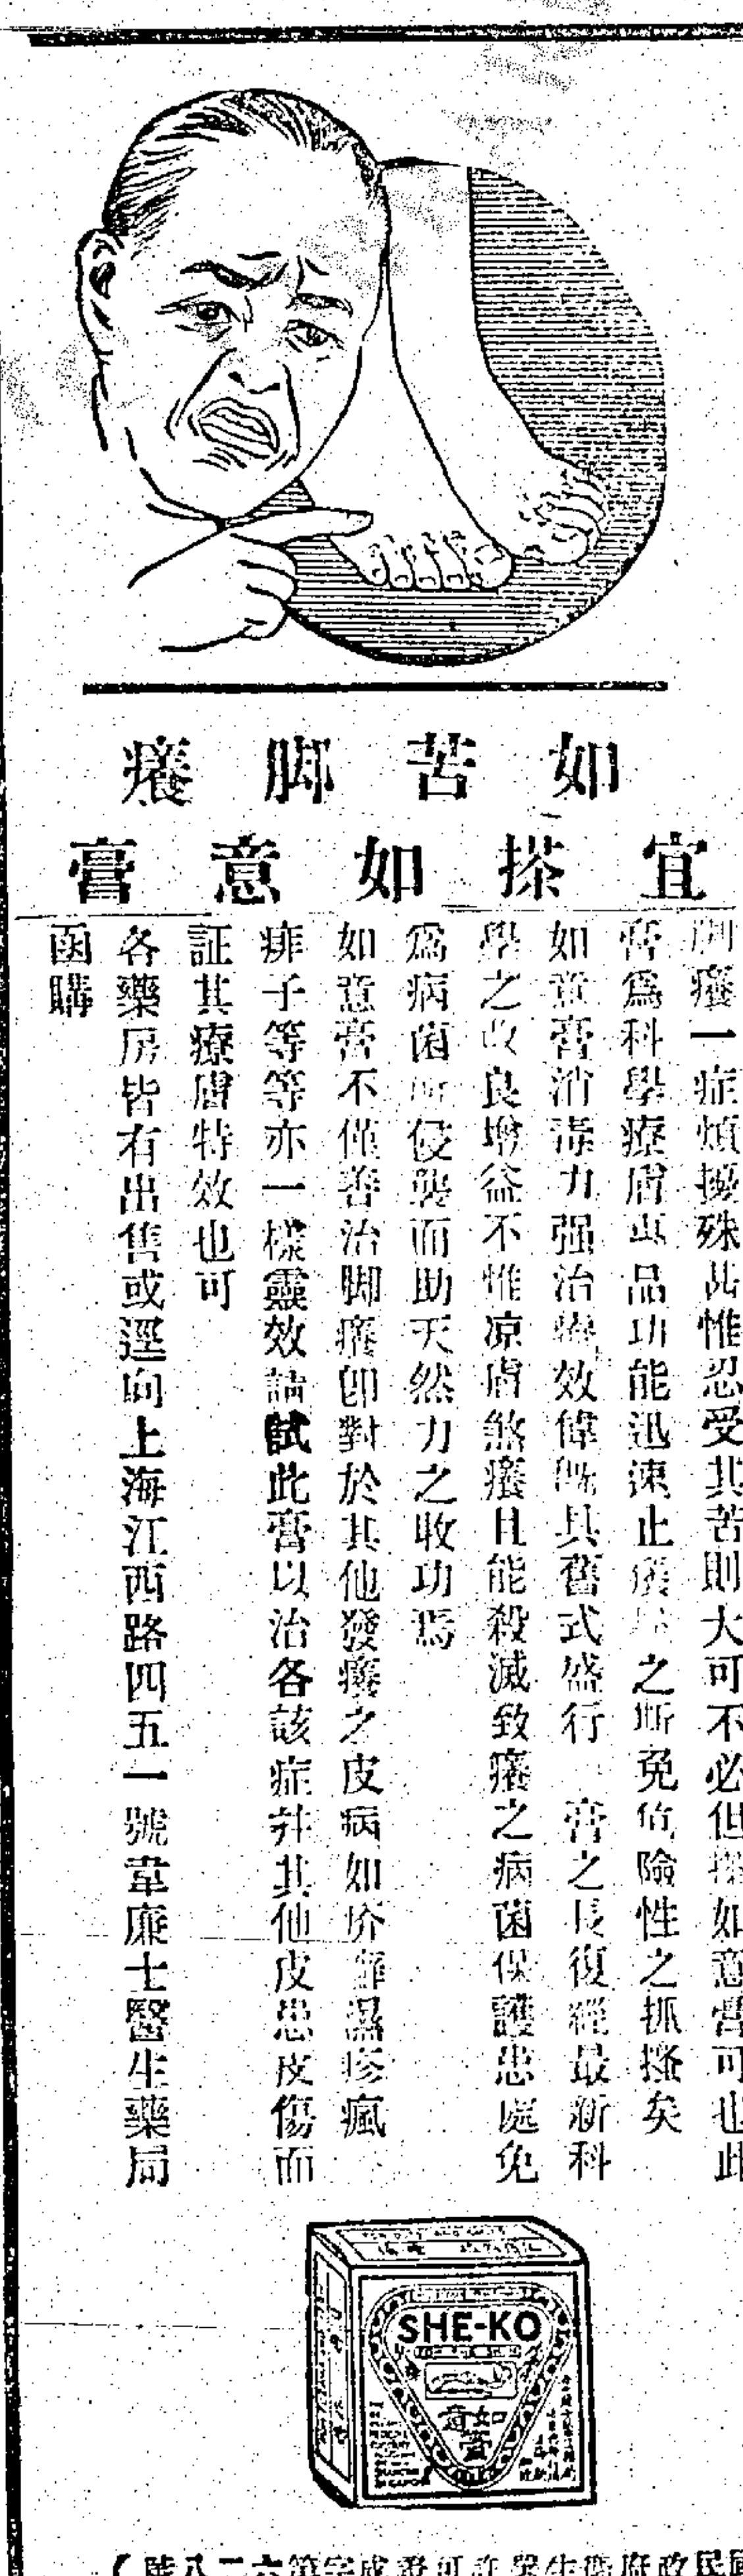 如苦脚癢
宜搽如意膏
癢一症煩擾殊甚惟忍受其苦則大可不必但搽如意膏可也此
膏爲科學療膚品功能迅速止癢之斯免危險性之抓搔矣
如意膏消毒力强治效偉既具舊式盛行膏之長復經最新科
學之改良增益不惟凉膚煞癢且能殺滅致癢之病菌保護患處免
爲病菌所侵襲而助天然力之收功焉
如意膏不僅善治脚癢卽對於其他發癢之皮病如疥癬濕疹瘋
痱子等等亦一樣靈效請試此膏以治各該症幷其他皮患皮傷而
証其療膚特效也可
各藥房皆有出售或逕向上海江西路四五一號韋廉士醫生藥局
函購
SHE-KO
如意
膏
國民政府衛生署許可證成字第六二八號